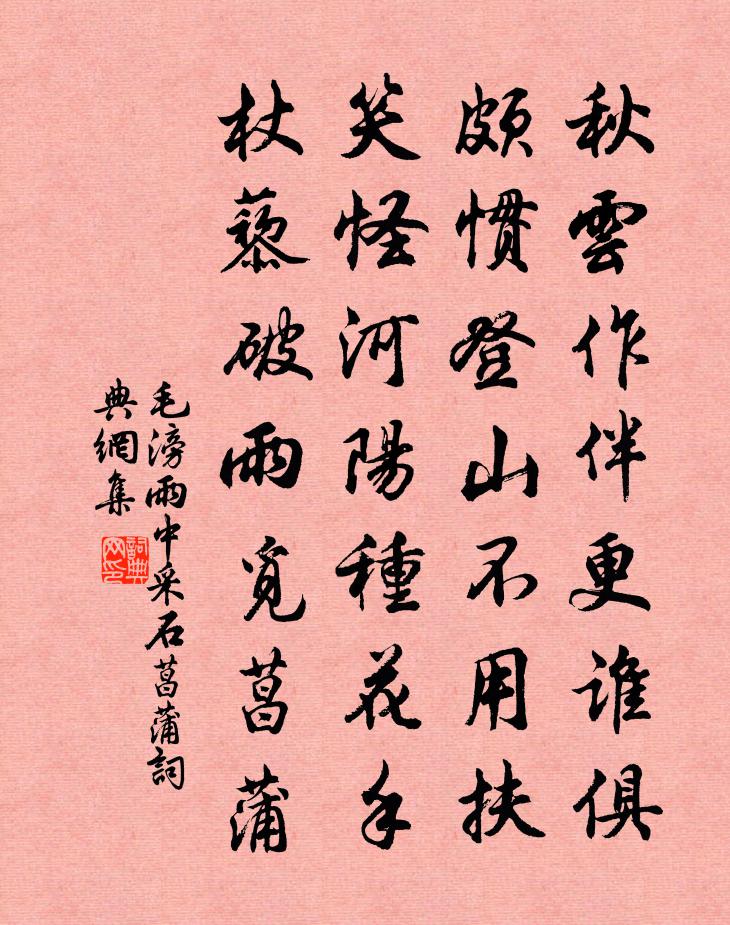 秋雲作伴更誰俱
頗慣登山不用扶
笑怪河陽種花手
杖藜破雨覓菖蒲
毛滂雨中采石菖蒲詞
典網集
詞典網印